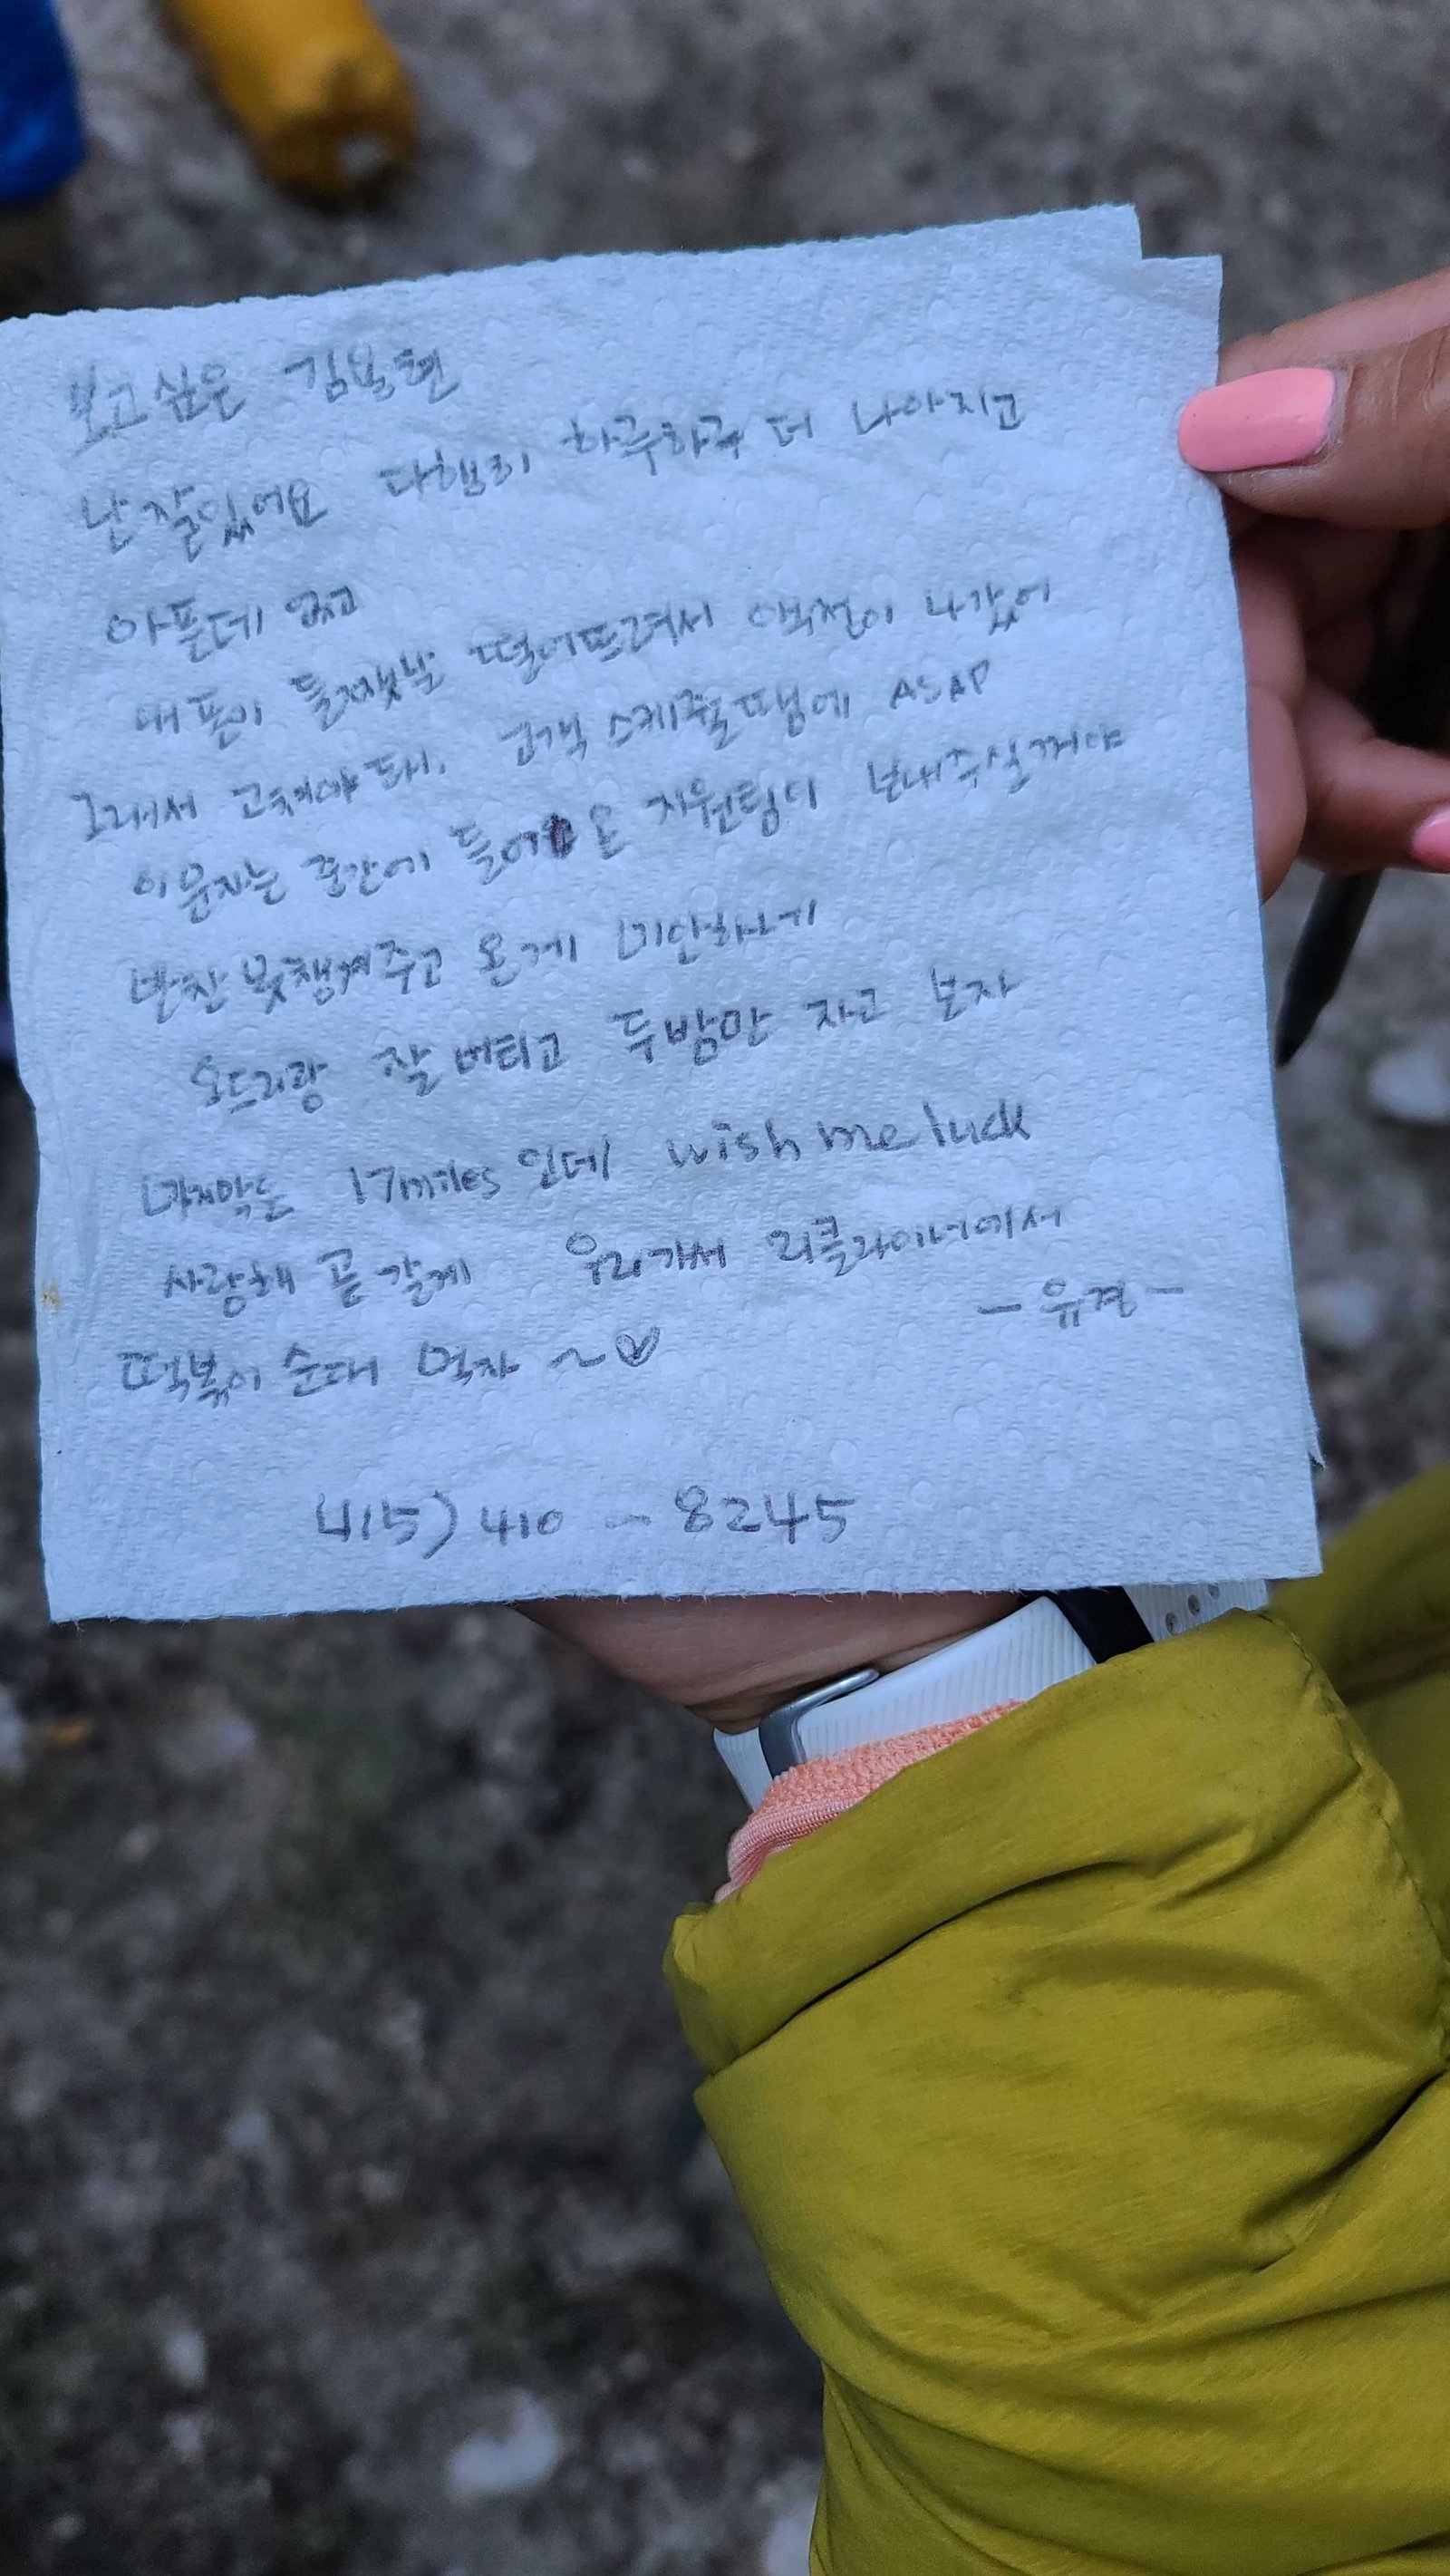 보고싶은 김용현
난 잘있어요 다행히 하루하루 더 나아지고
아픈데 없고
내 폰이 둘째날 떨어뜨려서 액정이 나갔어
그래서 고쳐야돼. 고객 스케쥴땜에 ASAP
이 문자는 중간에 들어온 지원팀이 보내주실꺼야
반찬 못챙겨주고 온게 미안하네
오드리랑 잘 버티고 두밤만 자고 보자
마지막은 17miles 인데 wish me luck
사랑해 곧 갈게 우리가서 리클라이너에서
떡볶이 순대 먹자 ~♡
- 유견 -
415) 410 - 8245